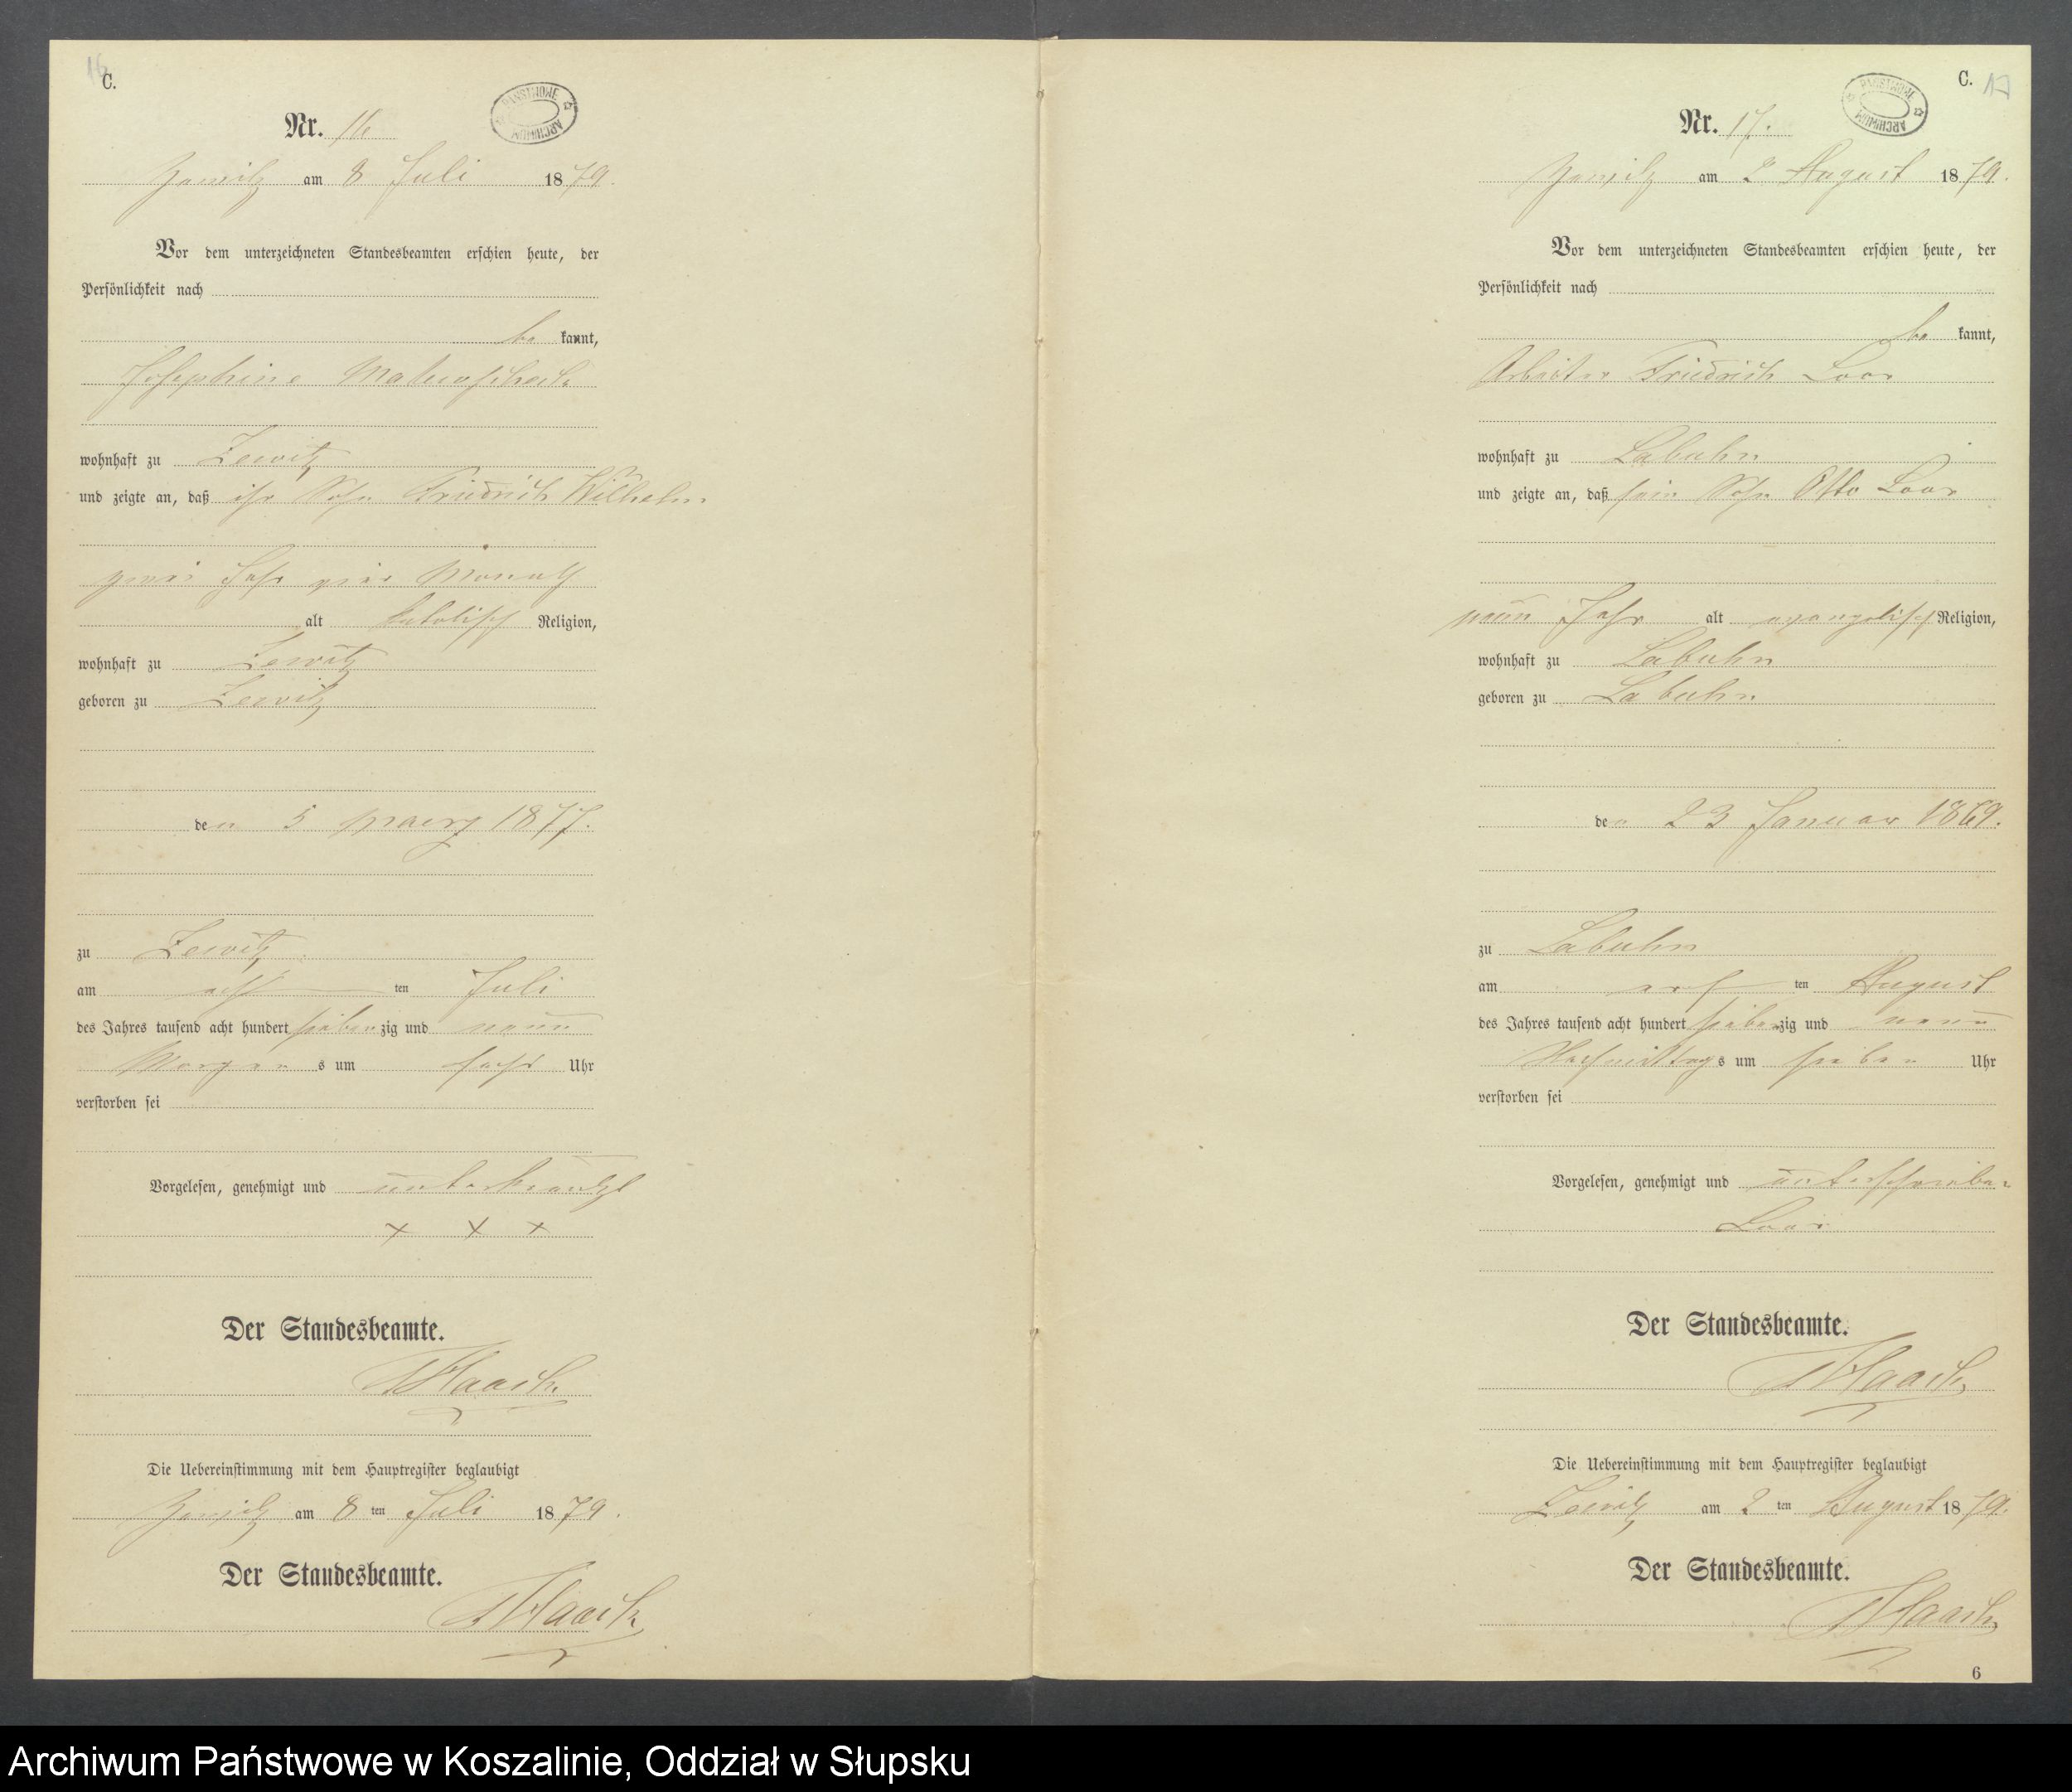 16
C.
Nr. 16
PAŃSTWOWE ARCHIWUM
Zewitz am 8 Juli 1879.
Vor dem unterzeichneten Standesbeamten erschien heute, der
Persönlichkeit nach
be kannt,
Josephine
wohnhaft zu Zewitz
und zeigte an, daß ihr Sohn Friedrich Wilhelm
zwei Jahr vier Monath
alt katolisch Religion,
wohnhaft zu Zewitz
geboren zu Zewitz
den 5 Maerz 1877.
zu Zewitz
am acht ten Juli
des Jahres tausend acht hundert siebenzig und neun
Morgen s um sechs Uhr
verstorben sei
Vorgelesen, genehmigt und unterkreutzt
+ + +
Der Standesbeamte.
Haack
Die Uebereinstimmung mit dem Hauptregister beglaubigt
Zewitz am 8 ten Juli 1879.
Der Standesbeamte.
Haack
C. 17
Nr. 17.
PAŃSTWOWE ARCHIWUM
Zewitz am 2 August 1879.
Vor dem unterzeichneten Standesbeamten erschien heute, der
Persönlichkeit nach
be kannt,
Arbeiter Friedrich Loor
wohnhaft zu Labuhn
und zeigte an, daß sein Sohn Otto Loor
neun Jahr alt evangelisch Religion,
wohnhaft zu Labuhn
geboren zu Labuhn
den 23 Januar 1869.
zu Labuhn
am ten August
des Jahres tausend acht hundert siebenzig und neun
Nachmittags um sieben Uhr
verstorben sei
Vorgelesen, genehmigt und unterschrieben
Loor
Der Standesbeamte.
Haack
Die Uebereinstimmung mit dem Hauptregister beglaubigt
Zewitz am 2 ten August 1879.
Der Standesbeamte.
Haack
6
Archiwum Państwowe w Koszalinie, Oddział w Słupsku